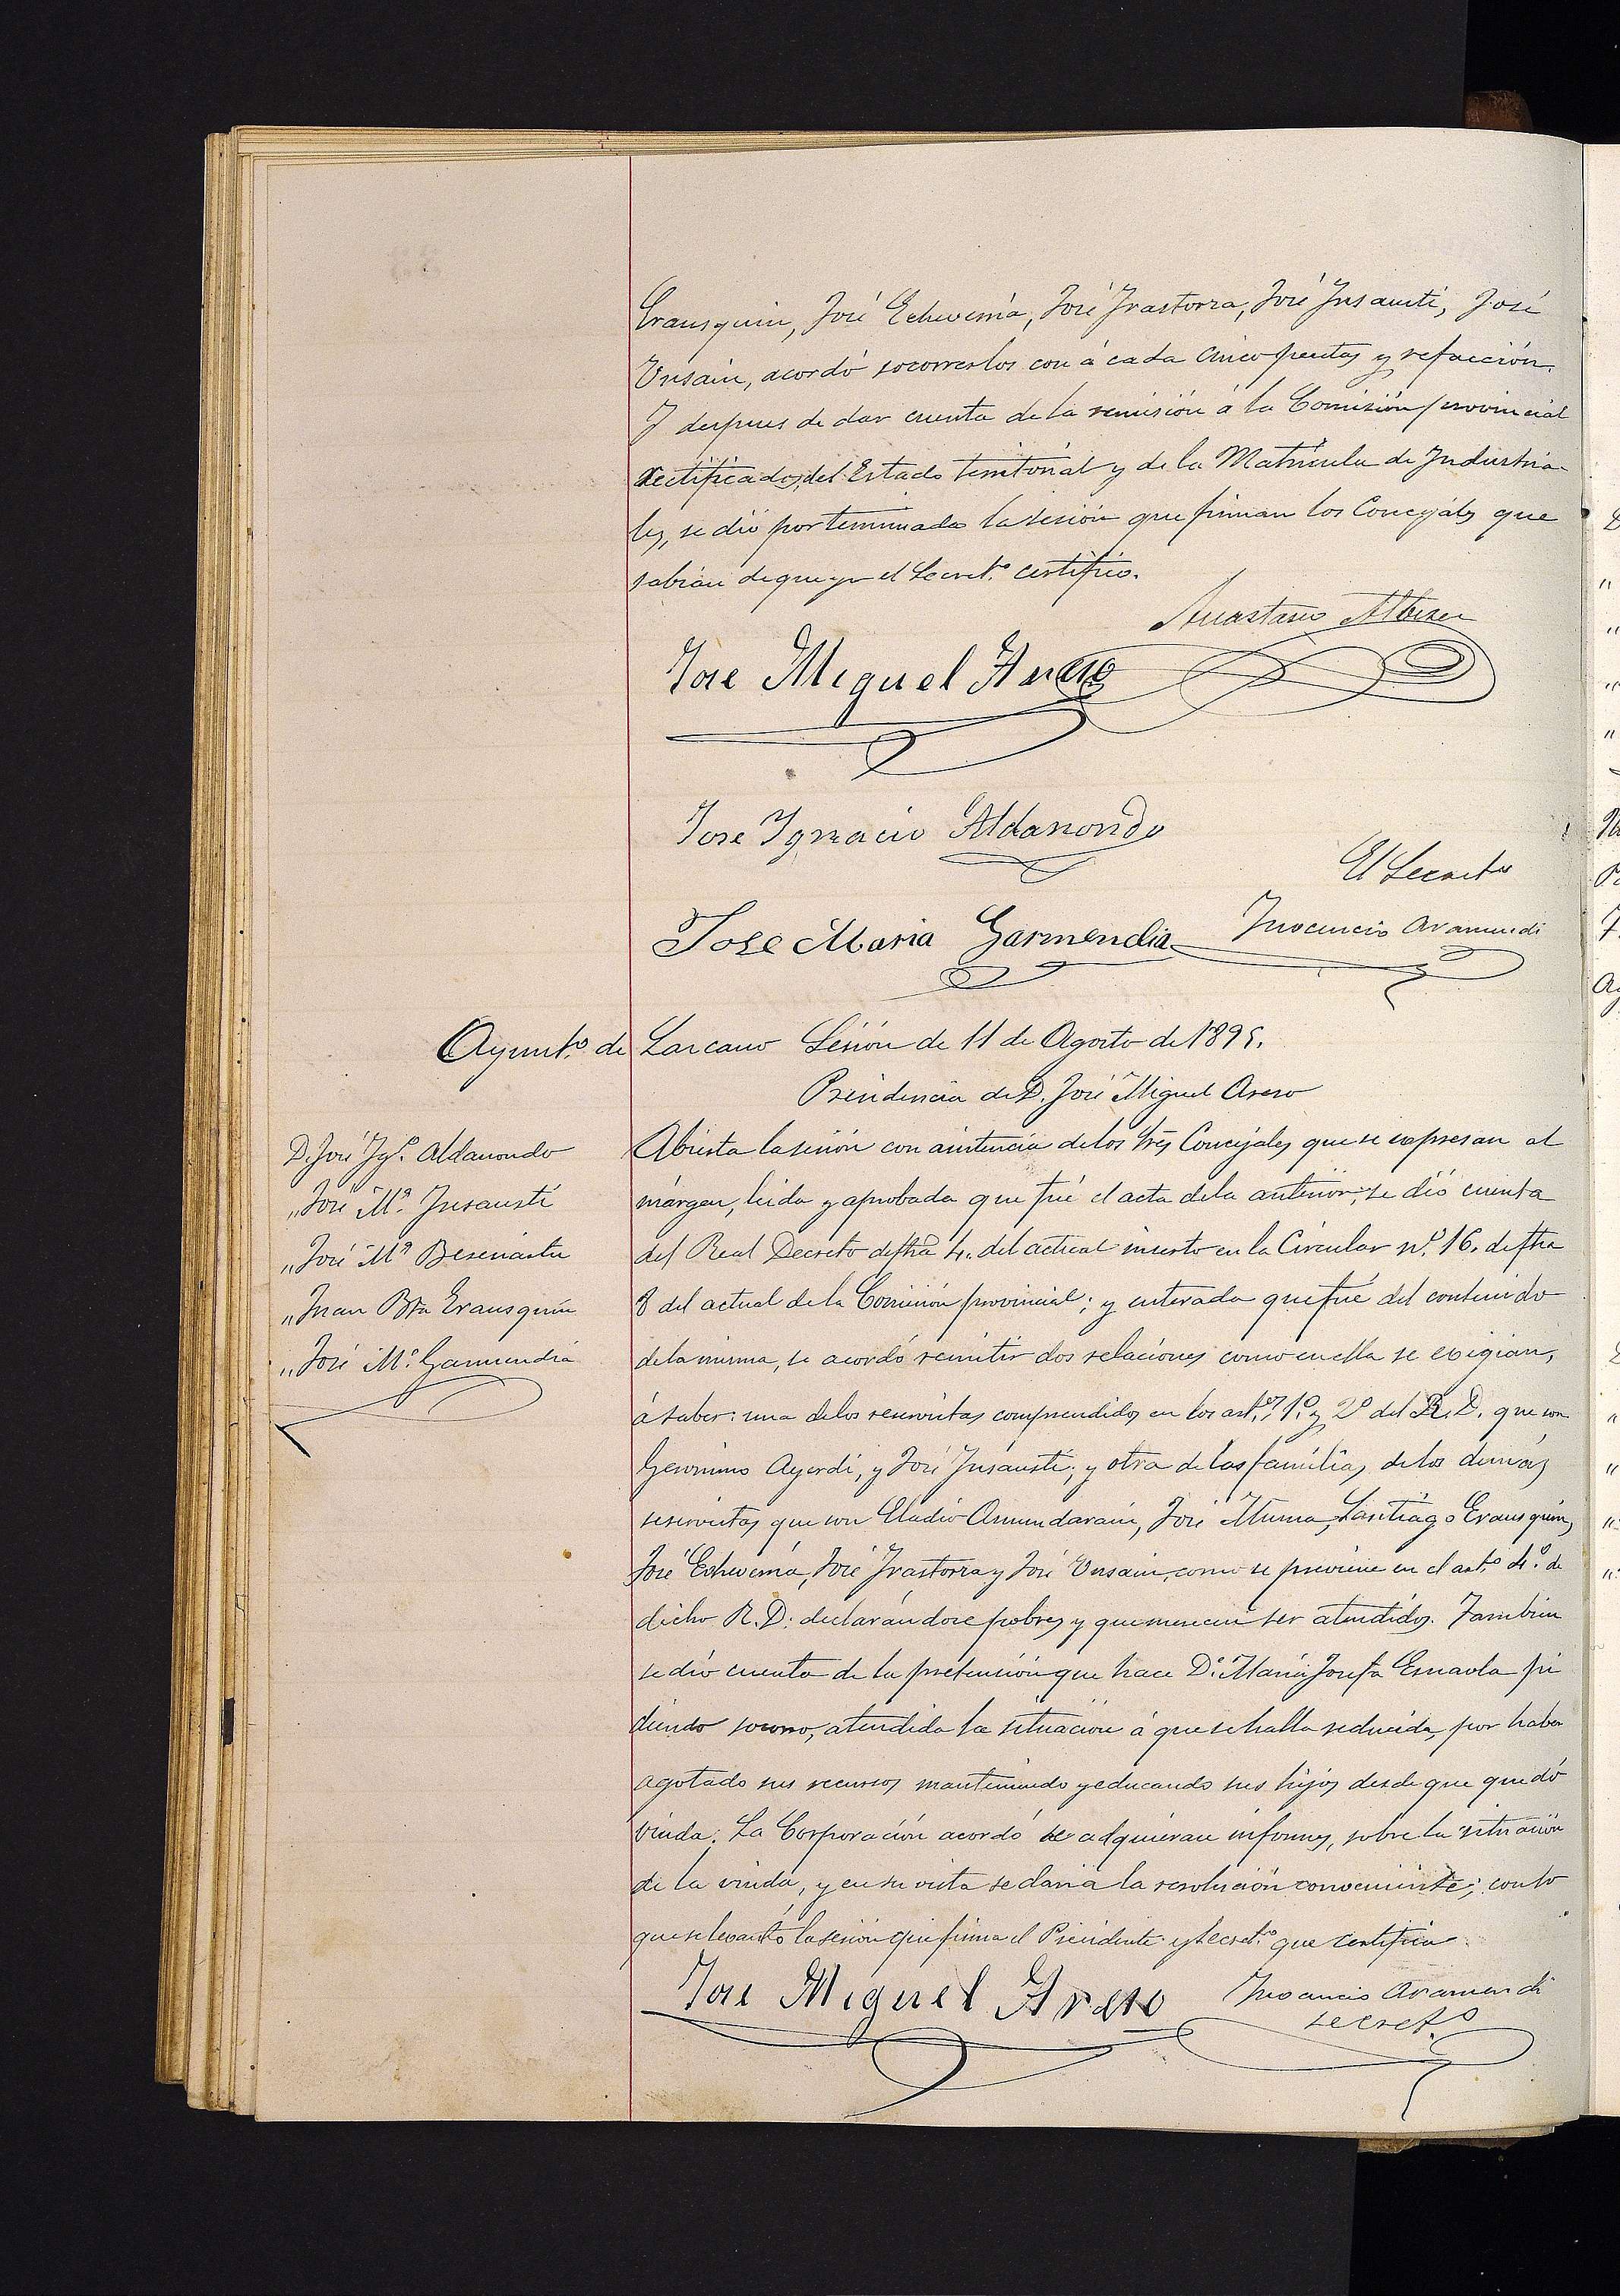 Erausquin, José Echeverria, José Irastorza, José Insausti, José
Unsain, acordó socorrerlos con á cada cinco pesetas y refacción.
Y despues de dar cuenta de la remisión á la Comisión provincial
rectificados, del Estado territorial y de la Matrícula de Industria-
les, se dió por terminada la sesión que firman los Concejales que
sabian de que yo el Secret.º certifico.
Anastasio Albizu
Jose Miguel Areso
Jose Ygnacio Aldanondo
El Secreto
Jose Maria Garmendia
Inocencio Aramendi
Ayunt.º de Lazcano Sesión de 11 de Agosto de 1895.
Presidencia de D. José Miguel Areso
D. José Ig.º Aldanondo
„ José M.ª Insausti
„ José M.ª
„ Juan Bta Erausquin
„ José M.ª Garmendia
Abierta la sesión con asistencia de los Sres Concejales que se expresan al
márgen, leida y aprobada que fué el acta de la anterior, se dió cuenta
del Real Decreto de fha 4. del actual inserto en la Circular nº. 16. de fha
8 del actual de la Comisión provincial; y enterada que fué del contenido
de la misma, se acordó remitir dos relaciones como en ella se exigian,
á saber: una de los reservistas comprendidos en los art.os 1º. y 2º del R. D. que son
Geronimo Ayerdi, y José Insausti; y otra de las familias de los demás
reservistas que son Eladio Amundarain, José Santiago Erausquin,
José Echeverria, José Irastorza y José Unsain, como se previene en el art.º 4.º de
dicho R. D: declarándose pobres y que merecen ser atendidos. Tambien
se dió cuenta de la pretensión que hace Dª. Maria Josefa Esnaola pi
diendo socorro, atendida la situación á que se halla reducida, por haber
agotado sus recursos manteniendo y educando sus hijos desde que quedó
viuda. La Corporación acordó se adquieran informes, sobre la situación
de la viuda, y en su vista se daria la resolución conveniente; con lo
que se levantó la sesión que firma el Presidente y Secret.º que certifica
Jose Miguel Areso
Inocencio Aramendi
secret.º